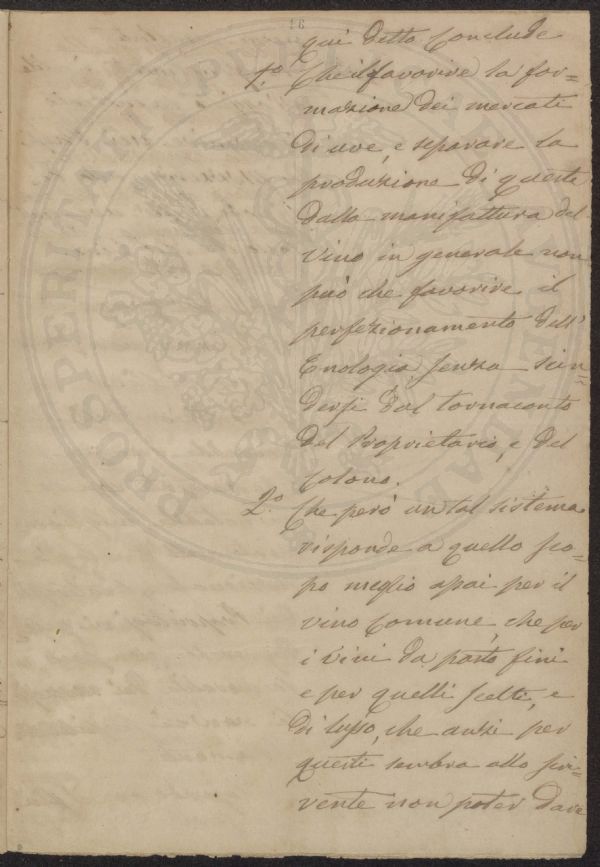 16
qui detto Conclude
1.o Che il favorire la for=
mazione dei mercati
di uve, e separare la
produzione di queste
dalla manifattura del
vino in generale non
può che favorire il
perfezionamento dell'
Enologia, senza scin=
dersi dal tornaconto
del Proprietario, e del
Colono.
2.o Che però un tal sistema
risponde a quello sco=
po meglio assai per il
vino Comune, che per
i vini da pasto fini
e per quelli scelti, e
di lusso, che anzi per
questi sembra allo scri=
vente non poter dare
PROSPERITATI AUGENDAE